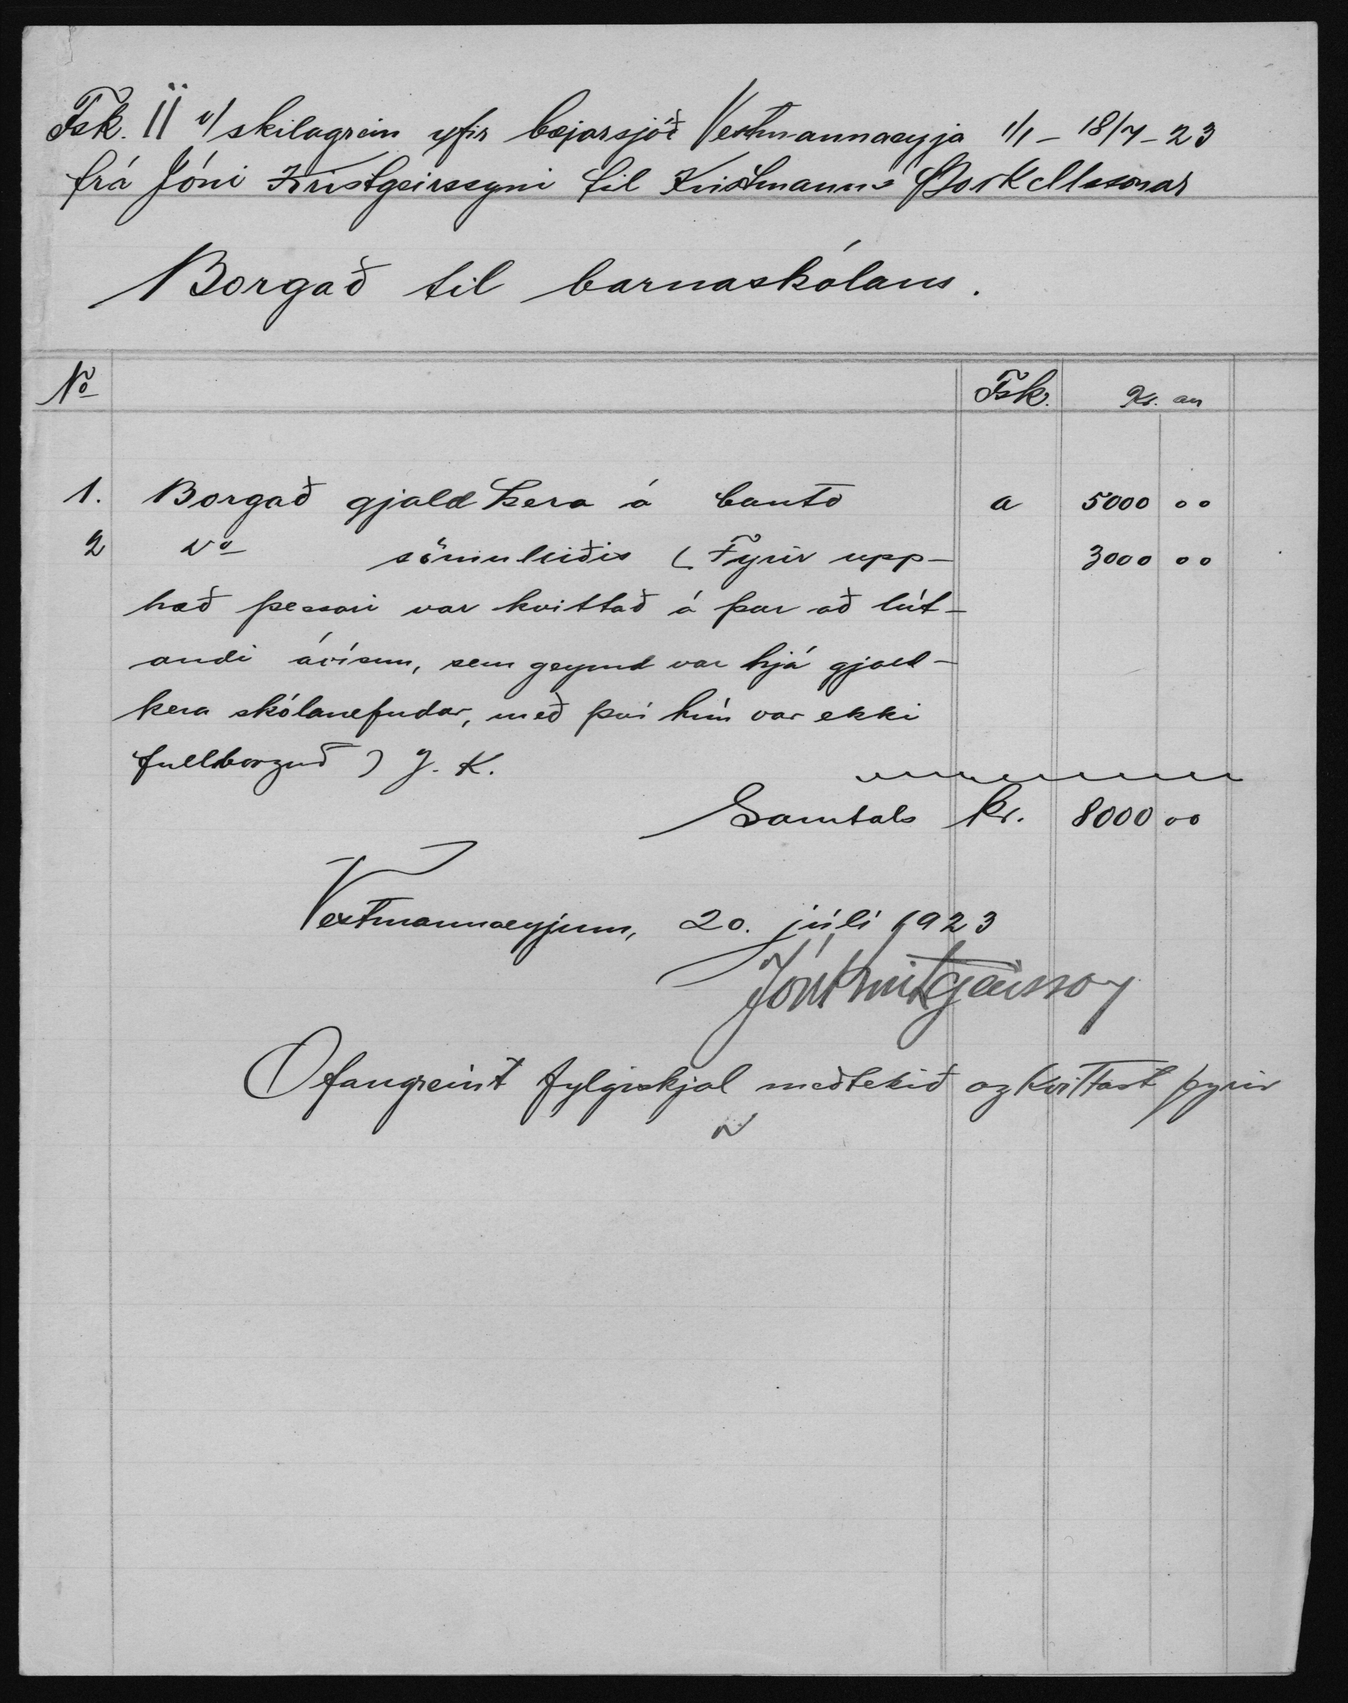 Fsk. II v/ skilagrein yfir bæjarsjóð Vestmannaeyja 1/1 – 18/7 – 23
frá Jóni Kristgeirssyni til Kristmanns Þorkelssonar
Borgað til barnaskólans.
No Fsk. Kr. au
1. Borgað gjaldkera á conto a 5000 00
2 Do sömuleiðis ( Fyrir upp- 3000 00
hæð þessari var kvittað á þar að lút-
andi ávísun, sem geymd var hjá gjald-
kera skólanefndar, með því hún var ekki
fullborguð ) J. K.
Samtals kr. 8000 00
Vestmannaeyjum, 20. júlí 1923
Jón Kristgeirsson
Ofangreint fylgiskjal meðtekið og kvittast fyrir